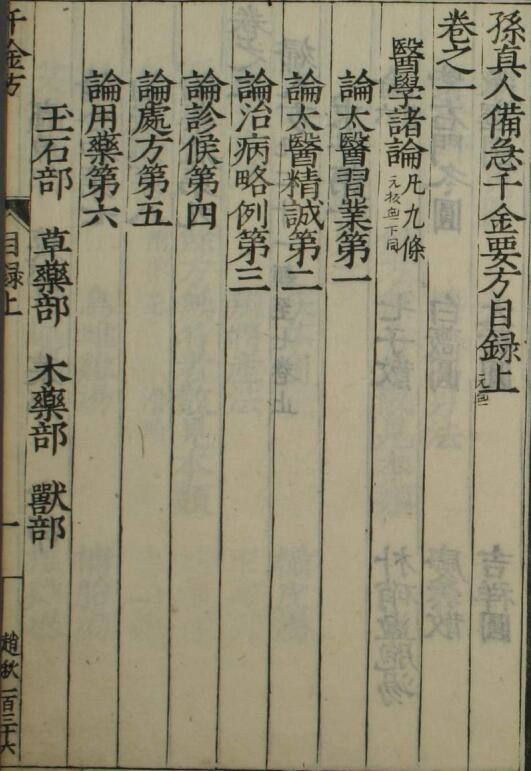 孫真人備急千金要方目録上
卷之一
醫學諸論凡九條
論太醫習業第一
論太醫精誠第二
論治病略例第三
論診候第四
論處方第五
論用藥第六
玉石部 草藥部 木藥部 獸部
千金方 目録上 一
趙秋 一百三十六